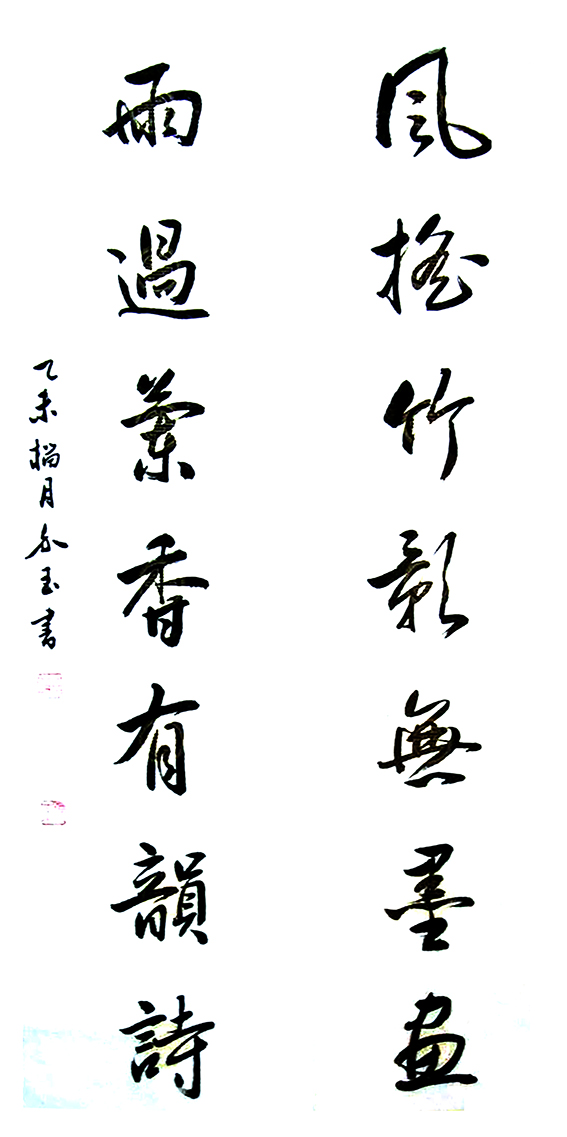 風搖竹影無墨畫
雨過蘭香有韻詩
乙未榴月金玉書